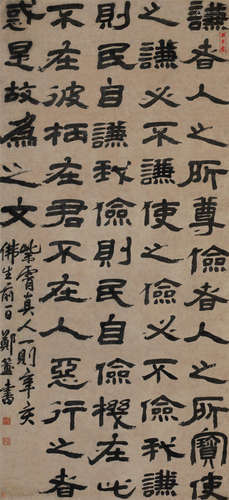 謙者人之所尊儉者人之所寶使
之謙必不謙使之儉必不儉我謙
則民自謙我儉則民自儉機在此
不在彼柄在君不在人惡行之者
惑是故為之文
紫霄真人一則辛亥
佛生前一日鄭簠書